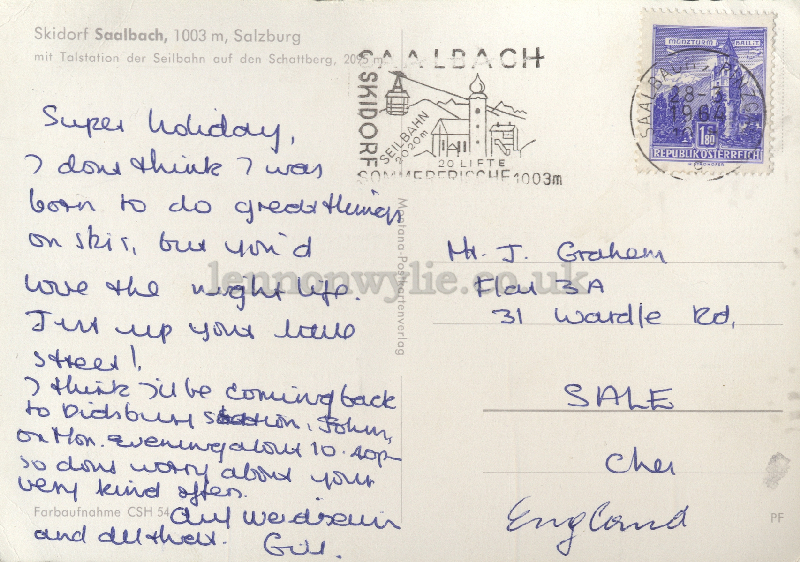 Skidorf Saalbach, 1003 m, Salzburg
mit Talstation der Seilbahn auf den Schattberg, 2095 m
SAALBACH
SKIDORF
SEILBAHN
2020m
20 LIFTE
SOMMERFRISCHE 1003m
MÜNZTURM HALL I.T.
SAALBACH
28-3
1964
1.80
REPUBLIK ÖSTERREICH
Super holiday,
I dont think I was
born to do great things
on skis, but you'd
love the night life.
Just up your little
street!
I think I'll be coming back
to Didsbury station, John,
on Mon. evening about 10.
so dont worry about your
very kind offer.
Auf Weidesein
and all that. Gill.
Farbaufnahme CSH 54
Montana-Postkartenverlag
lennonwylie.co.uk
Mr. J. Graham
Flat 3A
31 Wardle Rd,
SALE
Ches
England
PF